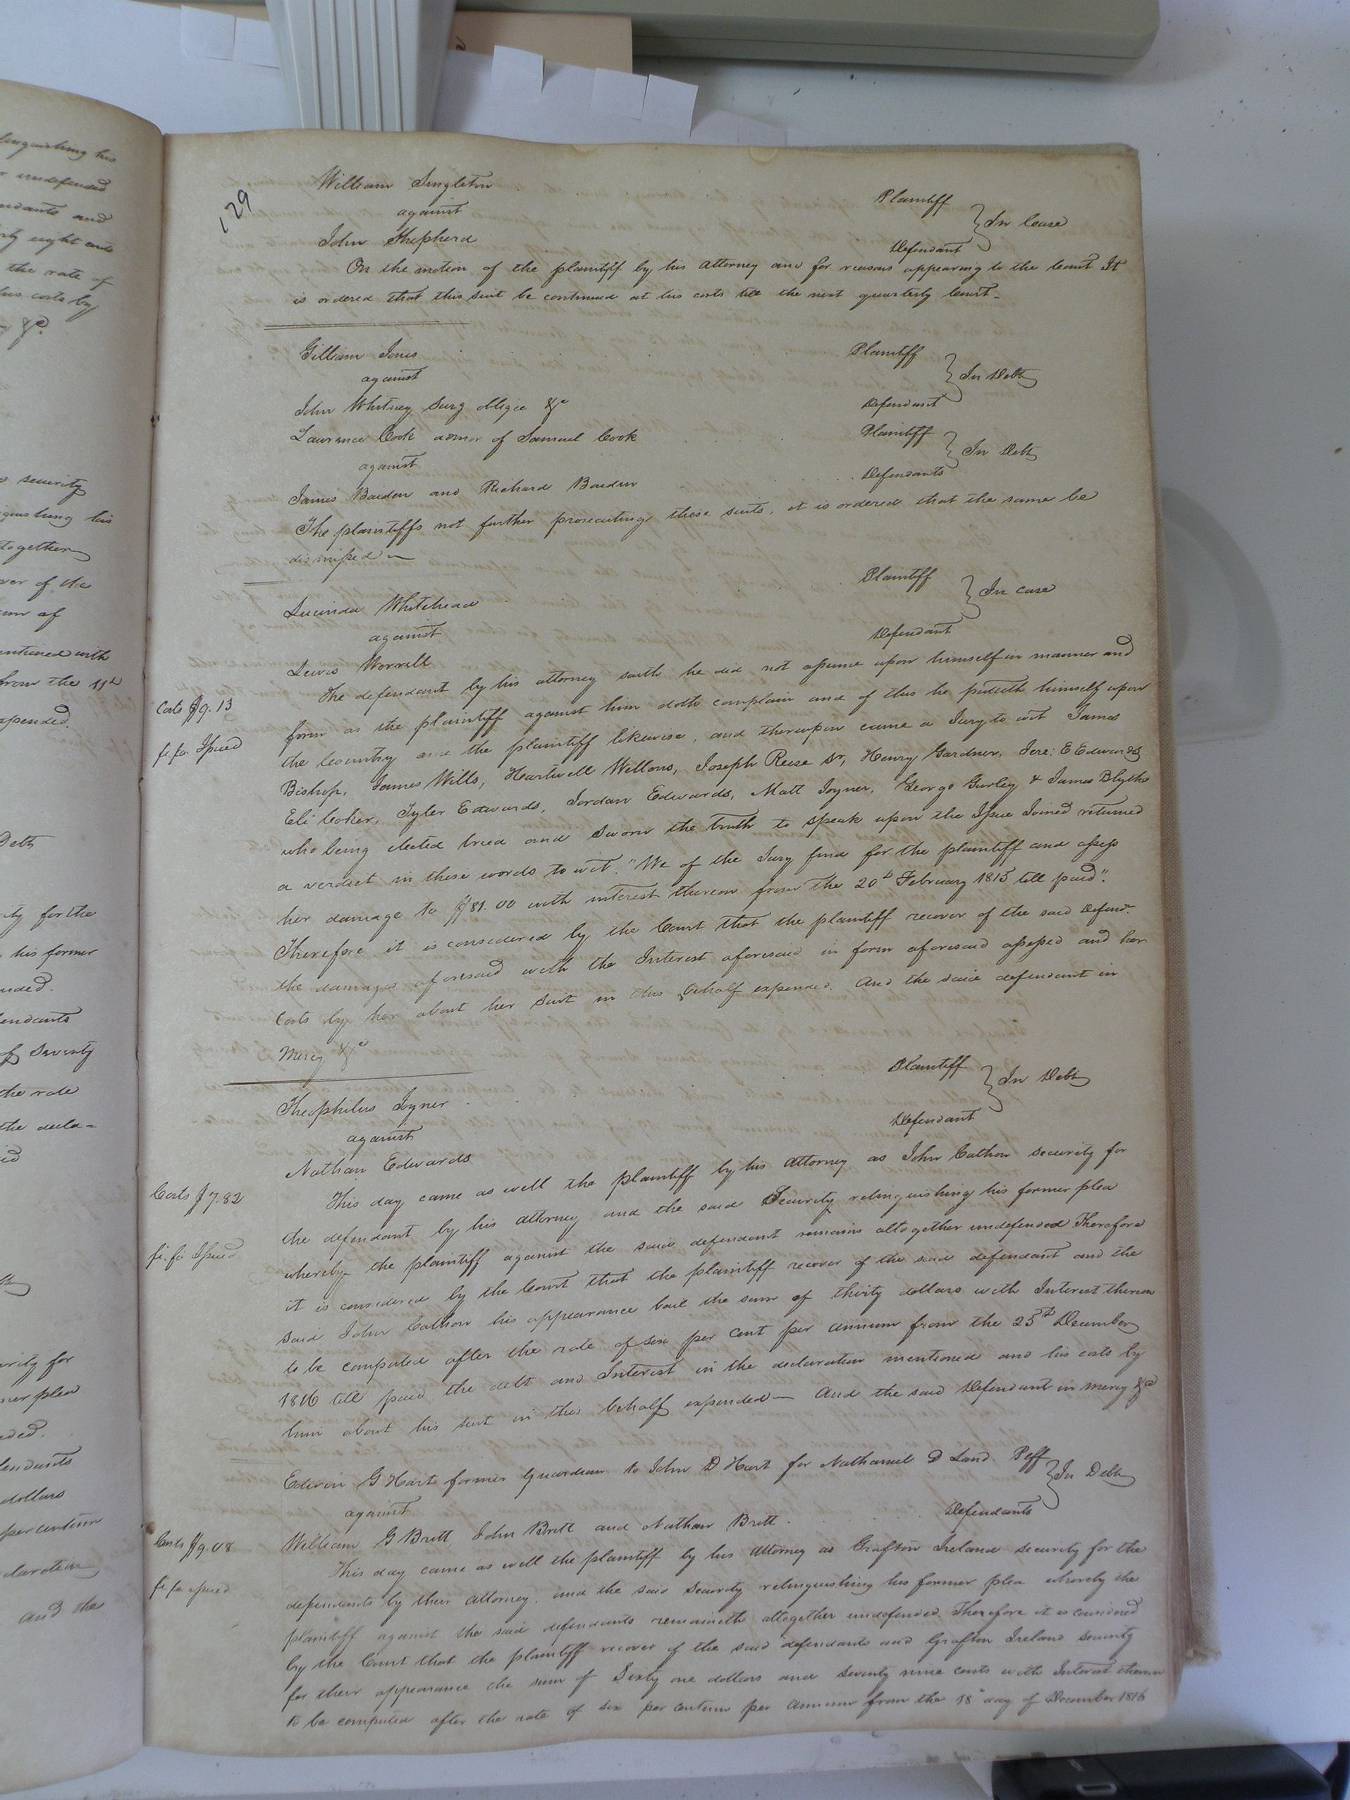 129
William Singleton Plaintiff
against } In Case
John Shepherd Defendant
On the motion of the plaintiff by his Attorney and for reasons appearing to the Court It
is ordered that this suit be continued at his costs till the next quarterly Court–
Gilliam Jones Plaintiff
against } In Debt
John Whitney Surg obligee &c Defendant
Lawrence Cook admor of Samuel Cook Plaintiff
against } In Debt
James Bowden and Richard Bowden Defendants
The plaintiffs not further prosecuting these suits, it is ordered that the same be
dismissed –
Lucinda Whitehead Plaintiff
against } In case
Lewis Worrell Defendant
The defendant by his attorney saith he did not assume upon himself in manner and
Costs $9.13
form as the plaintiff against him doth complain and of this he putteth himself upon
fi. fa. Issued
the Country and the plaintiff likewise, and thereupon came a Jury to wit James
Bishop, James Wills, Hartwell Willons, Joseph Reese Sr, Henry Gardner, Jere: E Edwards
Eli Coker, Tyler Edwards, Jordan Edwards, Matt Joyner, George Gurley & James Blythe
who being elected tried and sworn the truth to speak upon the Issue Joined returned
a verdict in these words to wit. "We of the Jury find for the plaintiff and assess
her damage to $81.00 with interest thereon from the 20th February 1815 till paid".
Therefore it is considered by the Court that the plaintiff recover of the said Defend.
the damages aforesaid with the Interest aforesaid in form aforesaid assessed and her
Costs by her about her suit in this behalf expended. And the said defendant in
Mercy &c
Theophilus Joyner Plaintiff
against } In Debt
Nathan Edwards Defendant
This day came as well the plaintiff by his Attorney as John Cathon security for
Costs $7.82
the defendant by his attorney and the said Security relinquishing his former plea
whereby the plaintiff against the said defendant remains altogether undefended Therefore
fi. fa. Issued
it is considered by the Court that the plaintiff recover of the said defendant and the
said John Cathon his appearance bail the sum of thirty dollars with Interest thereon
to be computed after the rate of six per cent per annum from the 25th December
1816 till paid the debt and Interest in the declaration mentioned and his costs by
him about his suit in this behalf expended – And the said Defendant in mercy &c
Edwin G Hart former Guardian to John D Hart for Nathaniel D Land Plff
against } In Debt
William G Britt, John Britt and Nathan Britt. Defendants
Costs $9.08
This day came as well the plaintiff by his Attorney as Grafton Ireland security for the
fi. fa. issued
defendants by their Attorney, and the said Security relinquishing his former plea whereby the
plaintiff against the said defendants remaineth altogether undefended. Therefore it is considered
by the Court that the plaintiff recover of the said defendants and Grafton Ireland security
for their appearance the sum of Sixty one dollars and seventy nine cents with Interest thereon
to be computed after the rate of six per centum per Annum from the 18th day of December 1816